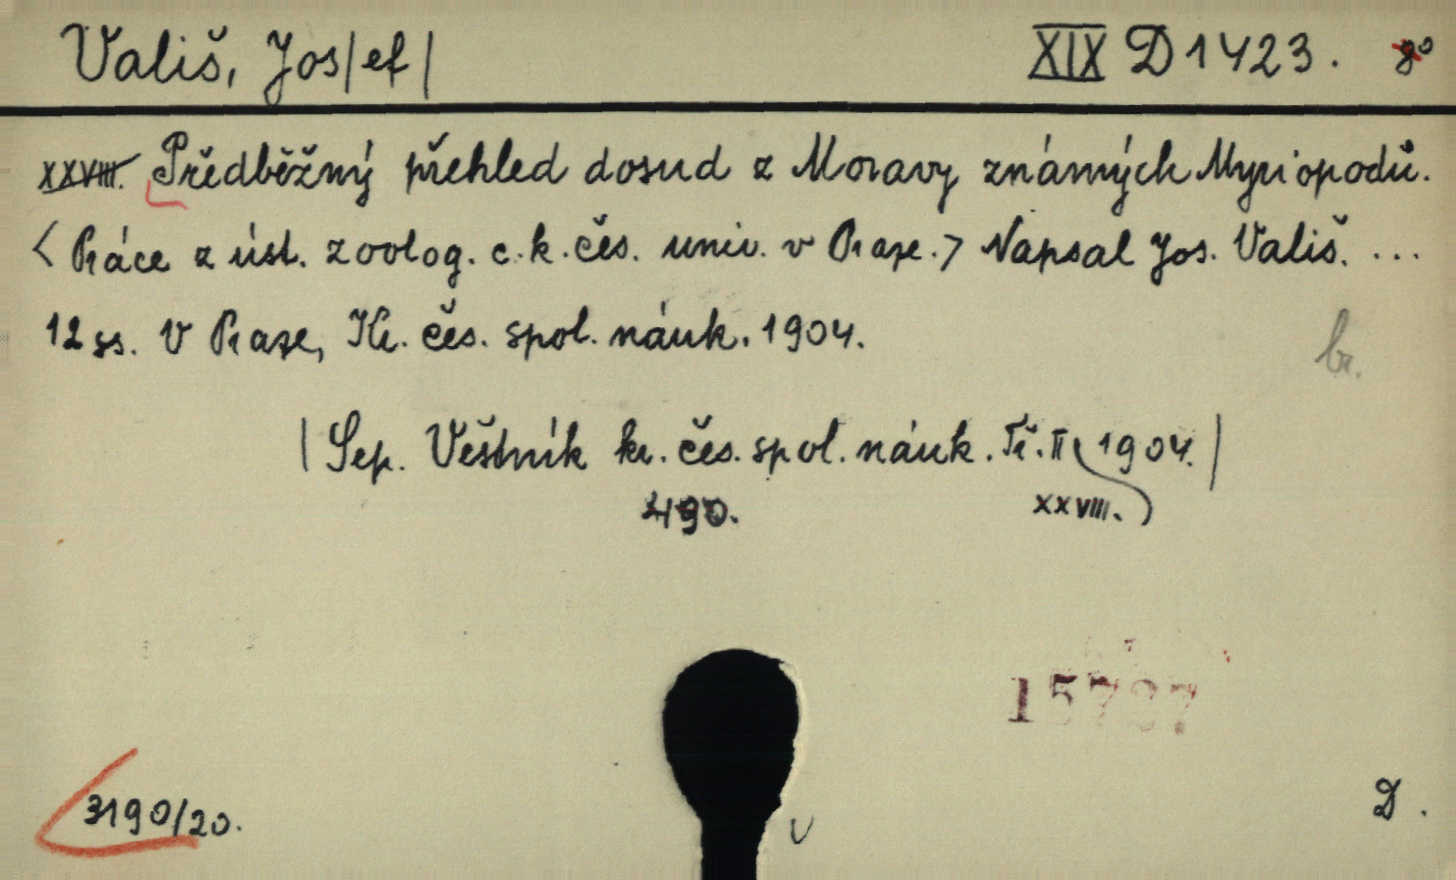 Vališ, Jos|ef| XIX D 1423. 8°
XXVIII. Předběžný přehled dosud z Moravy známých Myriopodů.
< Práce z úst. zoolog. c. k. čes. univ. v Praze. > Napsal Jos. Vališ. ...
12 ss. V Praze, Kr. čes. spol. náuk. 1904.
br.
| Sep. Věstník kr. čes. spol. náuk. Tř. II 1904. |
490. XXVIII.
3190/20.
D.